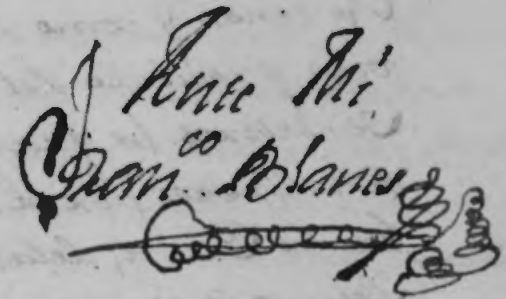 Ante Mi
Fran.co Blanes